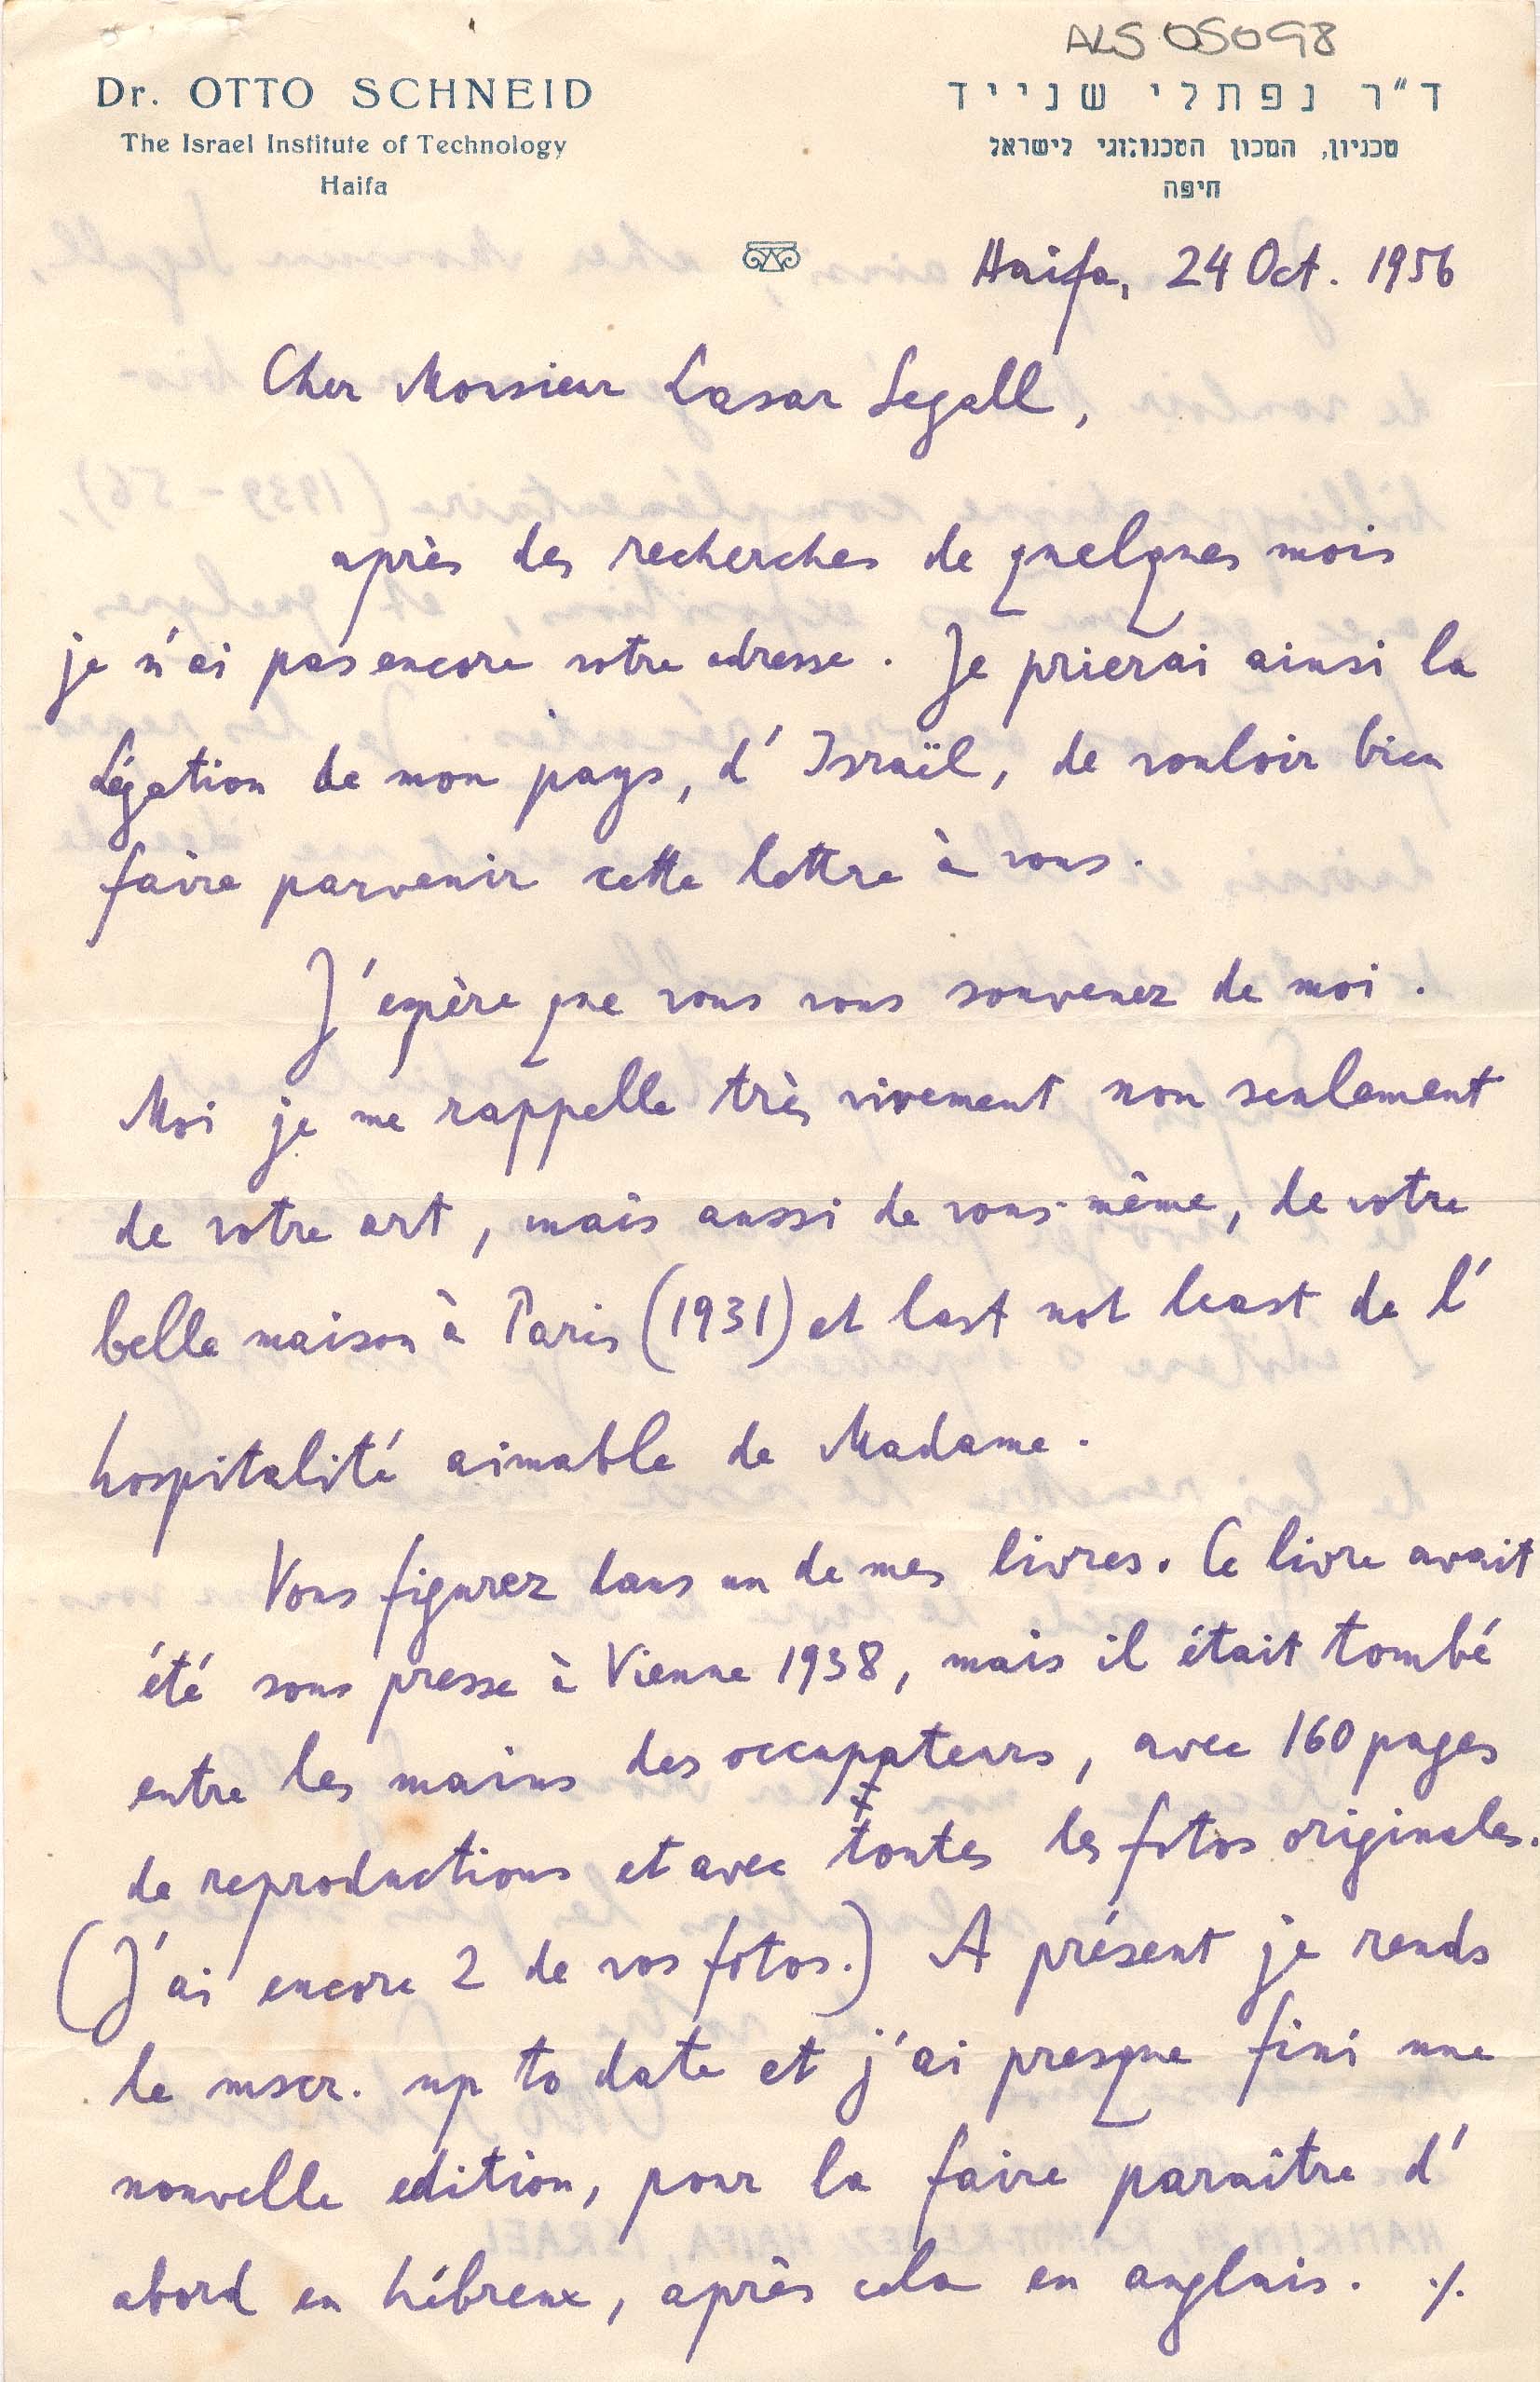 ALS 05098
Dr. OTTO SCHNEID
The Israel Institute of Technology
Haifa
ד"ר נפתלי שנייד
טכניון, המכון הטכנולוגי לישראל
חיפה
Haifa, 24 Oct. 1956
Cher Monsieur Lasar Segall,
après des recherches de quelques mois
je n'ai pas encore votre adresse. Je prierai ainsi la
Légation de mon pays, d'Israël, de vouloir bien
faire parvenir cette lettre à vous.
J'espère que vous vous souvenez de moi.
Moi je me rappelle très vivement non seulement
de votre art, mais aussi de vous-même, de votre
belle maison à Paris (1931) et last not least de l'
hospitalité aimable de Madame.
Vous figurez dans un de mes livres. Ce livre avait
été sous presse à Vienne 1938, mais il était tombé
entre les mains des occupateurs, avec 160 pages
de reproductions et avec toutes les fotos originales.
(J'ai encore 2 de vos fotos.) A présent je rends
le mscr. up to date et j'ai presque fini une
nouvelle edition, pour la faire paraître d'
abord en hébreux, après cela en anglais. ./.